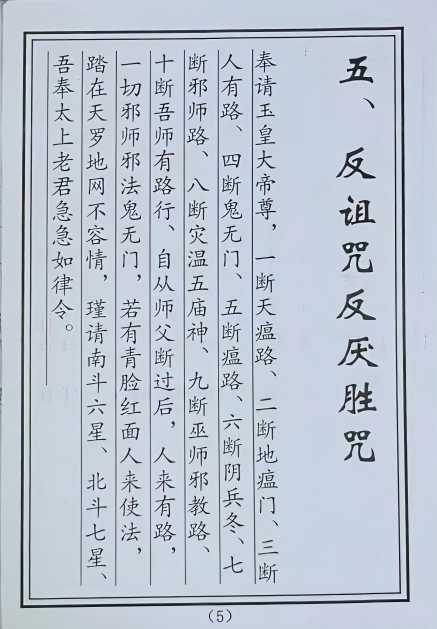 五、反诅咒反厌胜咒
奉请玉皇大帝尊，一断天瘟路、二断地瘟门、三断
人有路、四断鬼无门、五断瘟路、六断阴兵冬、七
断邪师路、八断灾温五庙神、九断巫师邪教路、
十断吾师有路行、自从师父断过后，人来有路，
一切邪师邪法鬼无门，若有青脸红面人来使法，
踏在天罗地网不容情，瑾请南斗六星、北斗七星、
吾奉太上老君急急如律令。
（5）